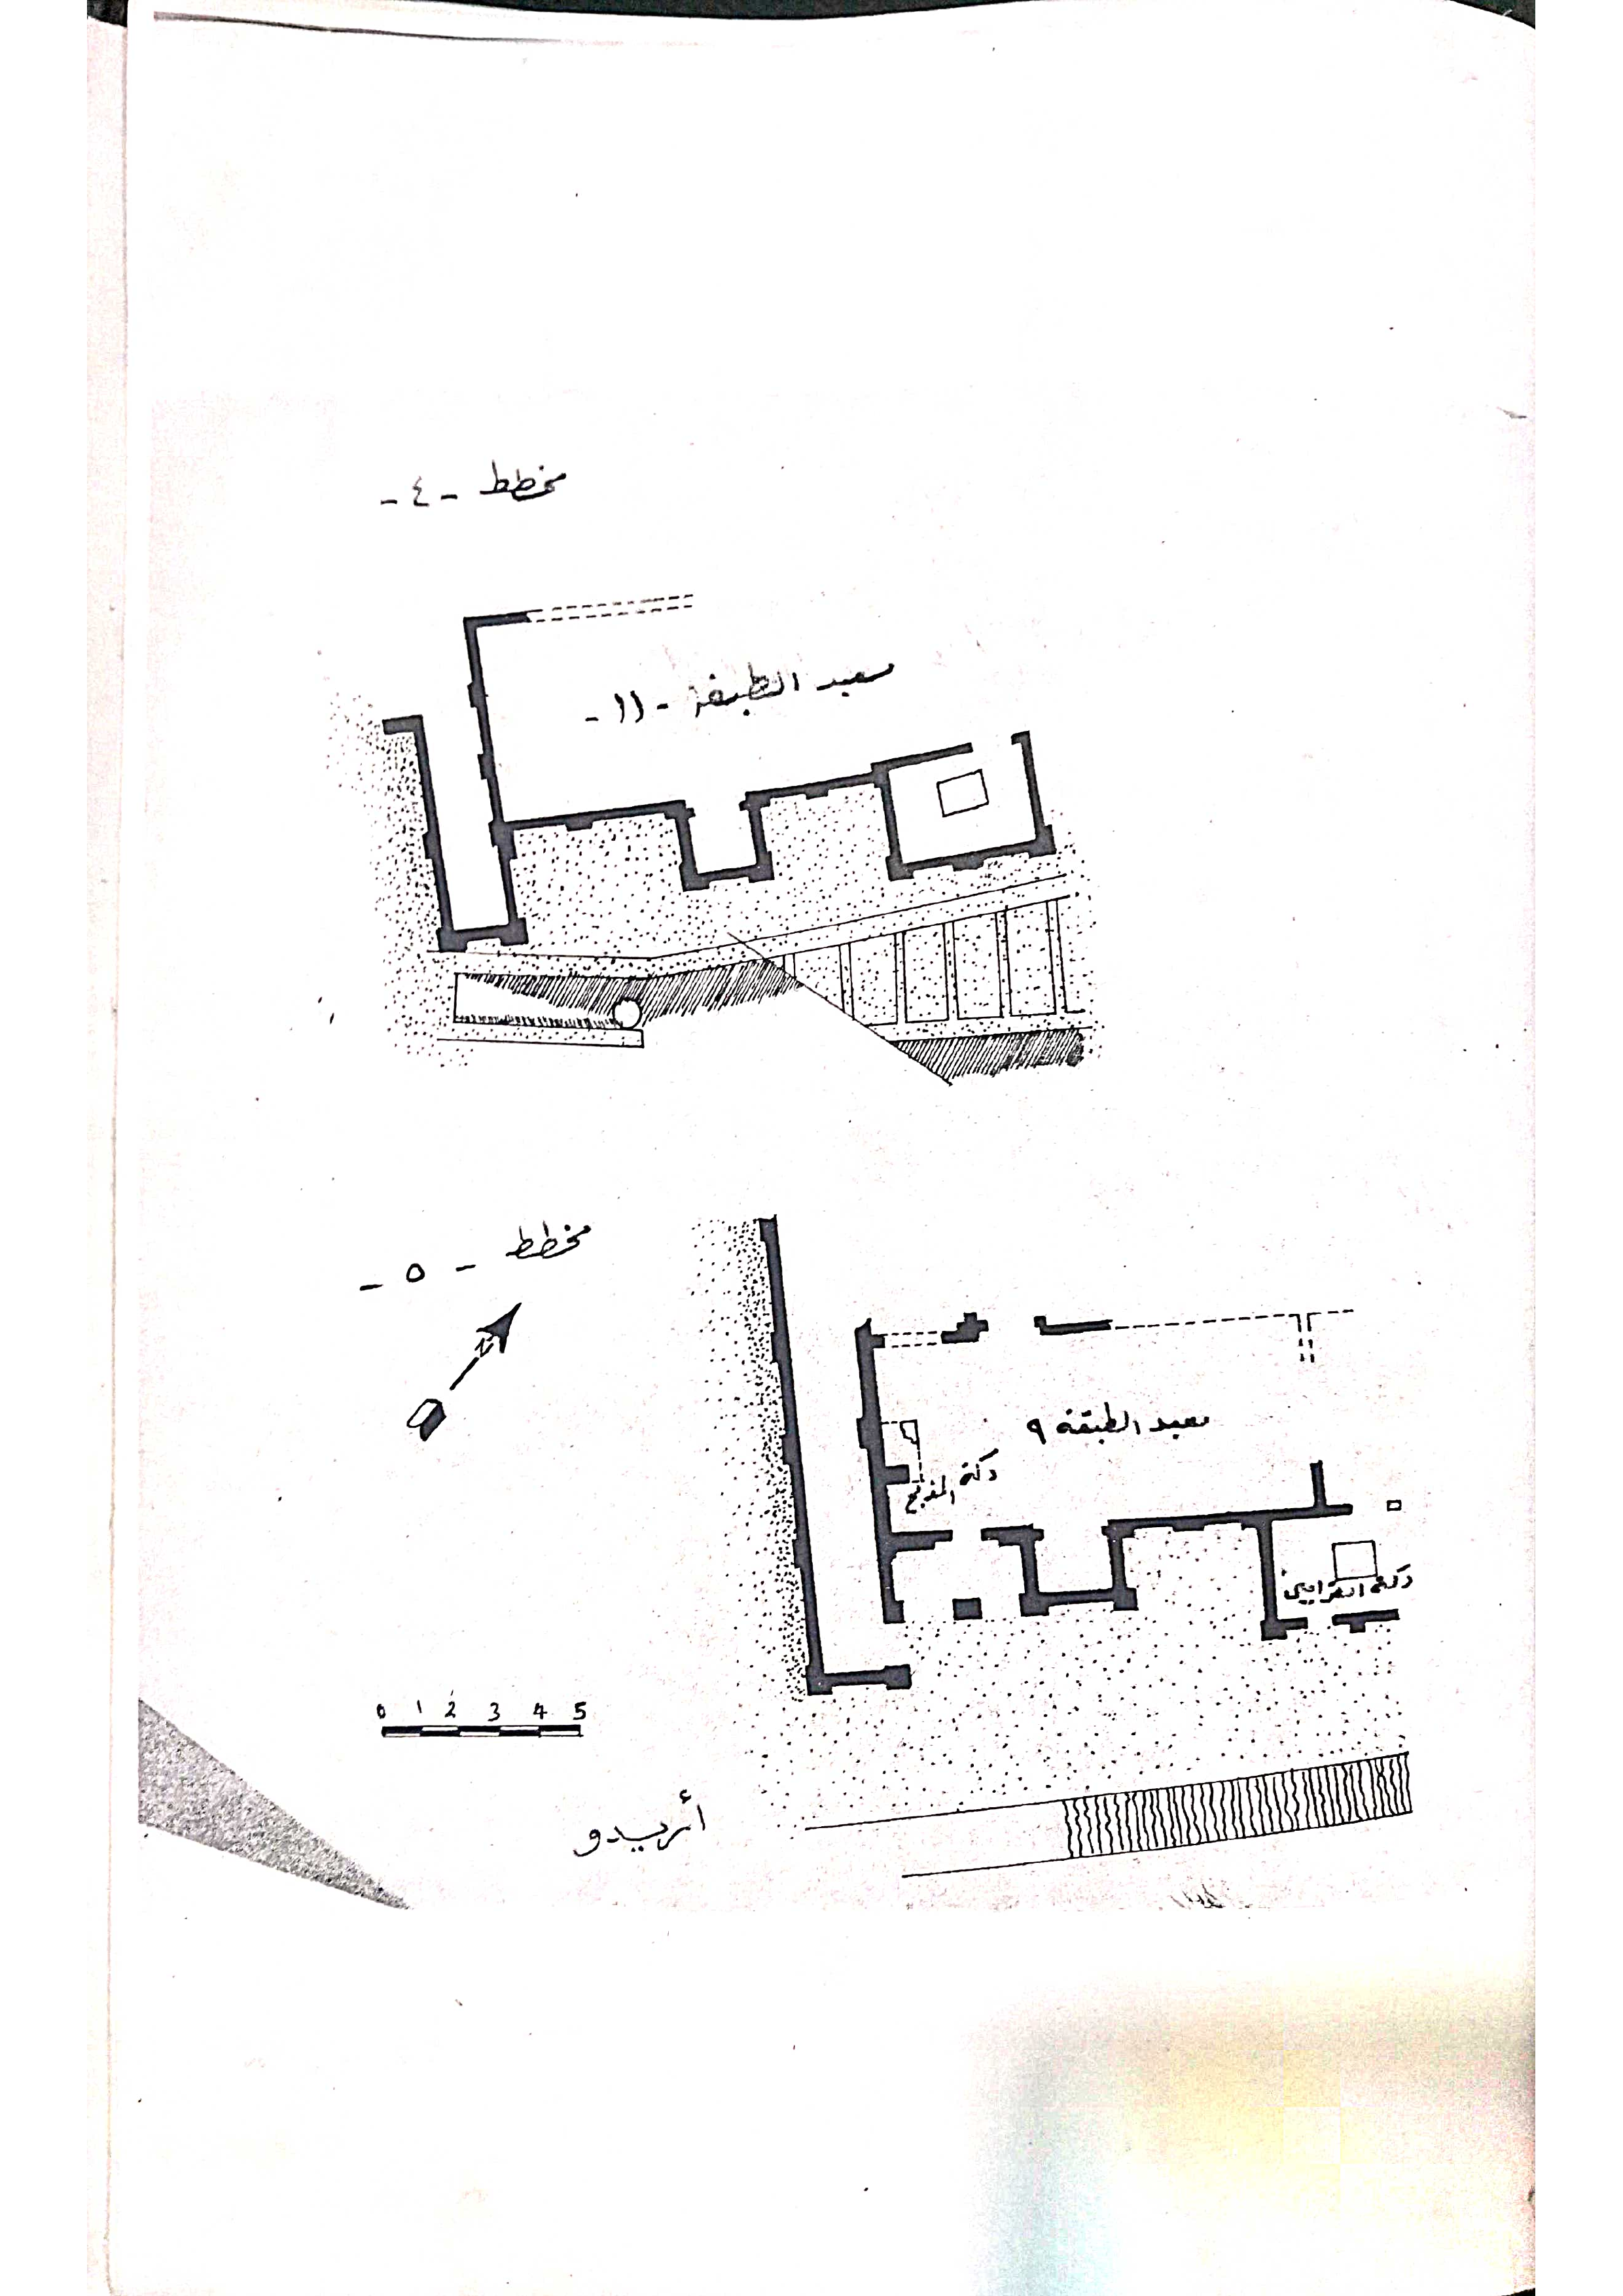 مخطط - ٤ -
معبد الطبقة - ١١ -
مخطط - ٥ -
N
معبد الطبقة ٩
دكة المذبح
دكة القرابين
0 1 2 3 4 5
أريدو